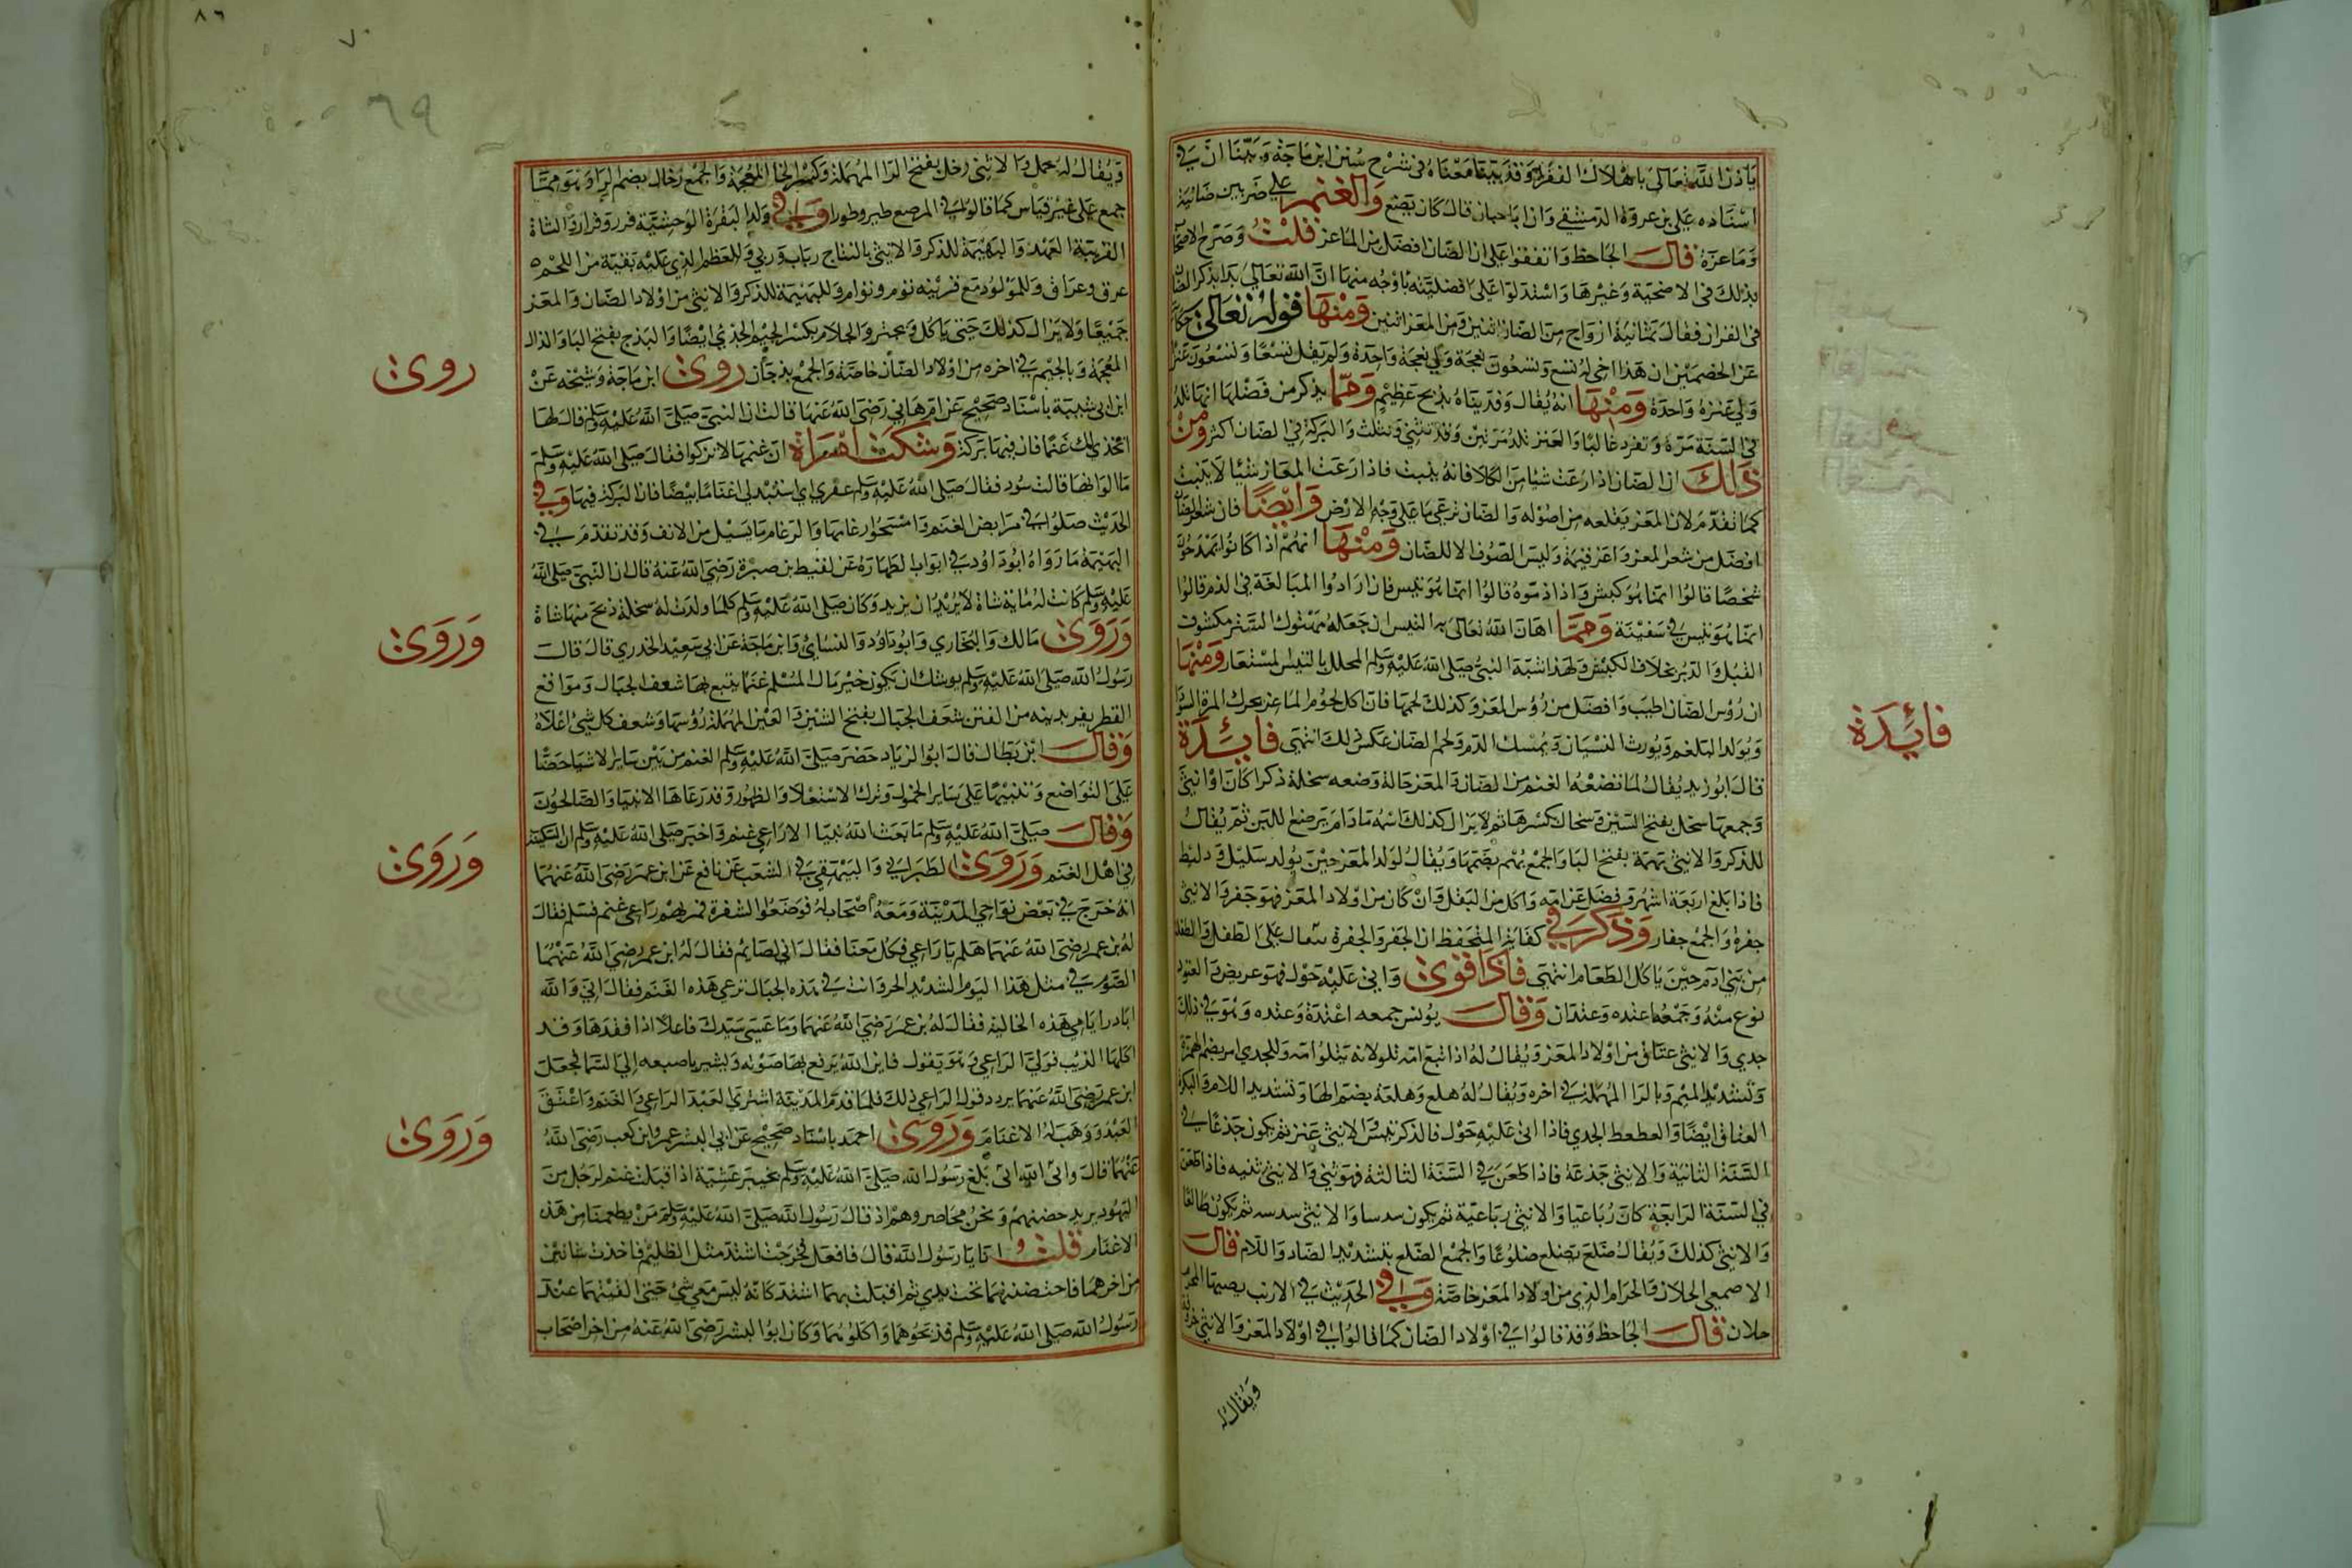 ياذن الله تعالى باهلاك الفقرا وقد بينا معناه في شرح سنن ابن ماجة وبينا ان في
اسناده علي بن عروة الدمشقي وان ابا حبان قال كان يضع والغنم على ضربين ضانية
وماعزة قال الجاحظ واتفقوا على ان الضان افضل من الماعز قلت وصرح الاصحاب
بذلك في الاضحية وغيرها واستدلوا على افضليته باوجه منها ان الله تعالى بدا بذكر الضان
في القران فقال ثمانية ازواج من الضان اثنين ومن المعز اثنين ومنها قوله تعالى حكاية
عن الخصمين ان هذا اخي له تسع وتسعون نعجة ولي نعجة واحدة ولم يقل تسعا وتسعون عنزا
ولي عنزة واحدة ومنها انه يقال وفديناه بذبح عظيم ومما يذكر من فضلها انها تلد
في السنة مرة وتفرد غالبا والعنز تلد مرتين وقد تثني وتثلث والبركة في الضان اكثر ومن
ذلك ان الضان اذا رعت شيا من الكلا فانه ينبت فاذا رعت المعاز شيا لا ينبت
كما تقدم لان المعز يقلعه من اصوله والضان ترعى ما على وجه الارض وايضا فان شعر الضان
افضل من شعر المعز واعز قيمة وليس الصوف الا للضان ومنها انهم اذا كانوا يمدحون
شخصا قالوا انما هو كبش واذا ذموه قالوا انما هو تيس فان ارادوا المبالغة في الذم قالوا
انما هو تيس في سفينة ومما اهان الله تعالى به التيس ان جعله مهتوك الستر مكشوف
القبل والدبر بخلاف الكبش ولهذا شبه النبي صلى الله عليه وسلم المحلل بالتيس المستعار ومنها
ان رؤس الضان اطيب وافضل من رؤس المعز وكذلك لحمها فان اكل لحوم الماعز يحرك المرة السودا
ويولد البلغم ويورث النسيان ويمسك الدم ولحم الضان عكس ذلك انتهى فائدة
قال ابو زيد يقال لما تضعه الغنم من الضان والمعز حالة وضعه سخلة ذكرا كان او انثى
وجمعها سخل بفتح السين وسخال بكسرها ثم لا يزال كذلك اسمه ما دام يرضع اللبن ثم يقال
للذكر والانثى بهمة بفتح البا والجمع بهم بضمها ويقال لولد المعز حين يولد سليل وسليط
فاذا بلغ اربعة اشهر وفصل عن امه واكل من البقل فان كان من اولاد المعز فهو جفر والانثى
جفرة والجمع جفار وذكر في كفاية المتحفظ ان الجفر والجفرة يقال على الطفل والطفلة
من بني ادم حين ياكل الطعام انتهى فاذا قوي واتى عليه حول فهو عريض والعتود
نوع منه وجمعها عتدة وعتدان وقال يونس جمعه اعتدة وعتده وهو في ذلك
جدي والانثى عناق من اولاد المعز ويقال له اذا اتبع امه تلو لانه يتلو امه وللجدي امر بضم الهمزة
وتشديد الميم وبالرا المهملة في اخره ويقال له هلع وهلعة بضم الها وتشديد اللام والبكرة
العناق ايضا والعطعط الجدي فاذا اتى عليه حول فالذكر تيس والانثى عنز ثم يكون جذعا في
السنة الثانية والانثى جذعة فاذا طعن في السنة الثالثة فهو ثني والانثى ثنيه فاذا طعن
في السنة الرابعة كان رباعيا والانثى رباعية ثم يكون سدسا والانثى سدسه ثم يكون ضالعا
والانثى كذلك ويقال ضلع يضلع ضلوعا والجمع الضلع بتشديد الضاد واللام قال
الاصمعي الحلان والحرام الذي من اولاد المعز خاصة وفي الحديث في الارنب يصيبها المحرم
حلان قال الجاحظ وقد قالوا في اولاد الضان كما قالوا في اولاد المعز والانثى
ويقال له
فائدة
ويقال له حمل والانثى رخل بفتح الرا المهملة وكسر الخا المعجمة والجمع رخال بضم الرا وهو مما
جمع على غير قياس كما قالوا في المرضع ظير وظوار وفي ولد البقرة الوحشية فرير وفرار والشاة
القريبة العهد والبهيمة للذكر والانثى بالنتاج رباب وربى وللعظم الذي عليه بقية من اللحم
عرق وعراق وللمولود مع قرينه توم وتوام وللبهيمة للذكر والانثى من اولاد الضان والمعز
جميعا ولا يزال كذلك حتى ياكل ويجتر والجلام بكسر الجيم الجدي ايضا والبذج بفتح البا والذال
المعجمة وبالجيم في اخره من اولاد الضان خاصة والجمع بذجان روى ابن ماجة وشيخه عن
ابن ابي شيبة باسناد صحيح عن ام هاني رضي الله عنها قالت ان النبي صلى الله عليه وسلم قال لها
اتخذي لك غنما فان فيها بركة وشكت امراة ان غنمها لا تزكوا فقال صلى الله عليه وسلم
ما الوانها قالت سود فقال صلى الله عليه وسلم عفري اي استبدلي اغناما بيضا فان البركة فيها وفي
الحديث صلوا في مرابض الغنم وامسحوا رغامها والرغام ما يسيل من الانف وقد تقدم في
البهيمة ما رواه ابو داود في ابواب الطهارة عن لقيط بن صبرة رضي الله عنه قال ان النبي صلى الله
عليه وسلم كانت له ماية شاة لا يريد ان يزيد وكان صلى الله عليه وسلم كلما ولدت له سخلة ذبح منها شاة
وروى مالك والبخاري وابو داود والنسائي وابن ماجة عن ابي سعيد الخدري قال قال
رسول الله صلى الله عليه وسلم يوشك ان يكون خير مال المسلم غنما يتبع بها شعف الجبال ومواقع
القطر يفر بدينه من الفتن شعف الجبال بفتح الشين والعين المهملة رؤسها وشعف كل شئ اعلاه
وقال ابن بطال قال ابو الزياد حض صلى الله عليه وسلم الغنم من بين ساير الاشيا حضا
على التواضع وتنبيها على ساير الخمول وترك الاستعلا والظهور وقد رعاها الانبيا والصالحون
وقال صلى الله عليه وسلم ما بعث الله نبيا الا راعي غنم واخبر صلى الله عليه وسلم ان السكينة
في اهل الغنم وروى الطبراني والبيهقي في الشعب عن نافع عن ابن عمر رضي الله عنهما
انه خرج في بعض نواحي المدينة ومعه اصحاب له فوضعوا السفرة فمر بهم راعي غنم فسلم فقال
له بن عمر رضي الله عنهما هلم يا راعي فكل معنا فقال اني لصايم فقال له ابن عمر رضي الله عنهما
الصوم في مثل هذا اليوم الشديد الحر وانت في هذه الجبال ترعى هذه الغنم فقال اني والله
ابادر ايامي هذه الخالية فقال له بن عمر رضي الله عنهما وما عسى سيدك فاعلا اذا فقدها وقد
اكلها الذيب فولى الراعي وهو يقول فاين الله يرفع بها صوته ويشير باصبعه الى السما فجعل
ابن عمر رضي الله عنهما يردد قول الراعي ذلك فلما قدم المدينة اشترى العبد الراعي والغنم واعتق
العبد ووهب له الاغنام وروى احمد باسناد صحيح عن ابي اليسر عمرو بن كعب رضي الله
عنهما قال والله اني بلغ رسول الله صلى الله عليه وسلم بخيبر عشية اذا قبلت غنم لرجل من
اليهود يريد حصنهم ونحن محاصروهم اذ قال رسول الله صلى الله عليه وسلم من يطعمنا من هذه
الاغنام قلت انا يا رسول الله قال فافعل فخرجت اشتد مثل الظليم فاخذت شاتين
من اخرهما فاحتضنتهما تحت يدي ثم اقبلت بهما اشتد كانه ليس معي شئ حتى القيتهما عند
رسول الله صلى الله عليه وسلم فذبحوهما واكلوهما وكان ابو اليسر رضي الله عنه من اخر اصحاب
روى
وروى
وروى
وروى
٦٩
٨٦